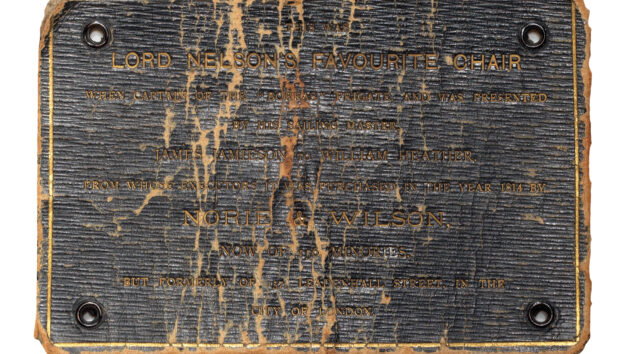 LORD NELSON'S FAVOURITE CHAIR
WHEN CAPTAIN OF THE FRIGATE AND WAS PRESENTED
BY HIS SAILING MASTER,
JAMES JAMESON WILLIAM HEATHER,
FROM WHOSE EXECUTORS IT WAS PURCHASED IN THE YEAR 1814 BY
NORIE & WILSON,
NOW OF MINORIES,
BUT FORMERLY OF LEADENHALL STREET IN THE
CITY OF LONDON